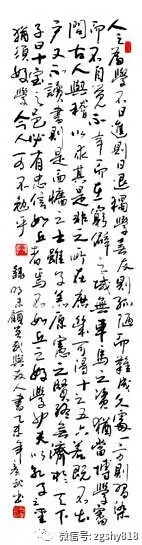 人之為學不日進則日退獨學無友則孤陋而難成久處一方則習染
而不自覺不幸而在窮僻之域無車馬之資猶當博學審
問古人與稽以求其是非之所在庶幾可得十之五六若既不出
戶又不讀書則是面牆之士雖子羔原憲之賢終無濟於天下
子曰十室之邑必有忠信如丘者焉不如丘之好學也夫以孔子之聖
猶須好學今人可不勉乎 明末顧炎武與友人書 乙未年
微信号: zgshy818